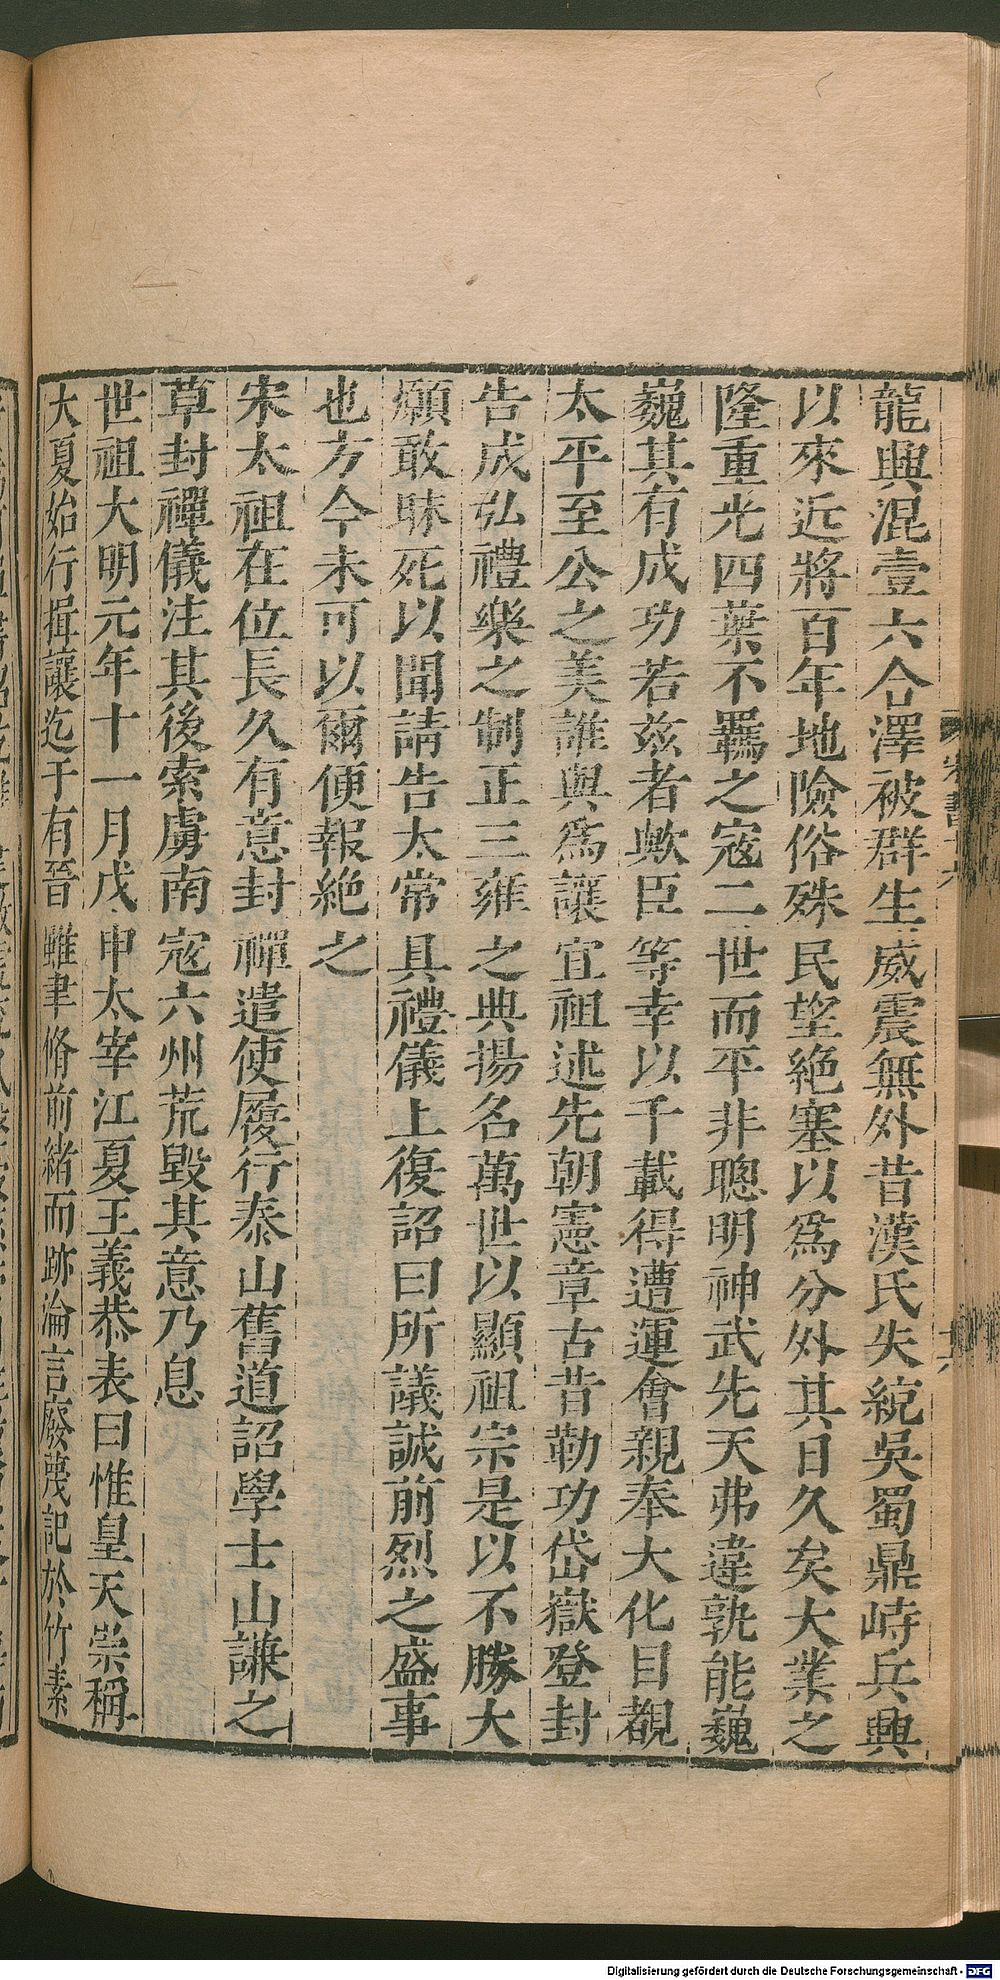 龍興混壹六合澤被群生威震無外昔漢氏失統吳蜀鼎峙兵興
以來近將百年地險俗殊民望絕塞以爲分外其日久矣大業之
隆重光四葉不羈之寇二世而平非聰明神武先天弗違孰能巍
巍其有成功若茲者歟臣等幸以千載得遭運會親奉大化目覩
太平至公之美誰與爲讓宜祖述先朝憲章古昔勒功岱嶽登封
告成弘禮樂之制正三雍之典揚名萬世以顯祖宗是以不勝大
願敢昧死以聞請告太常具禮儀上復詔曰所議誠前烈之盛事
也方今未可以爾便報絕之
宋太祖在位長久有意封禪遣使履行泰山舊道詔學士山謙之
草封禪儀注其後索虜南寇六州荒毀其意乃息
世祖大明元年十一月戊申太宰江夏王義恭表曰惟皇天崇稱
大夏始行揖讓迄于有晉雖聿脩前緒而跡淪言廢蔑記於竹素
Digitalisierung gefördert durch die Deutsche Forschungsgemeinschaft - DFG